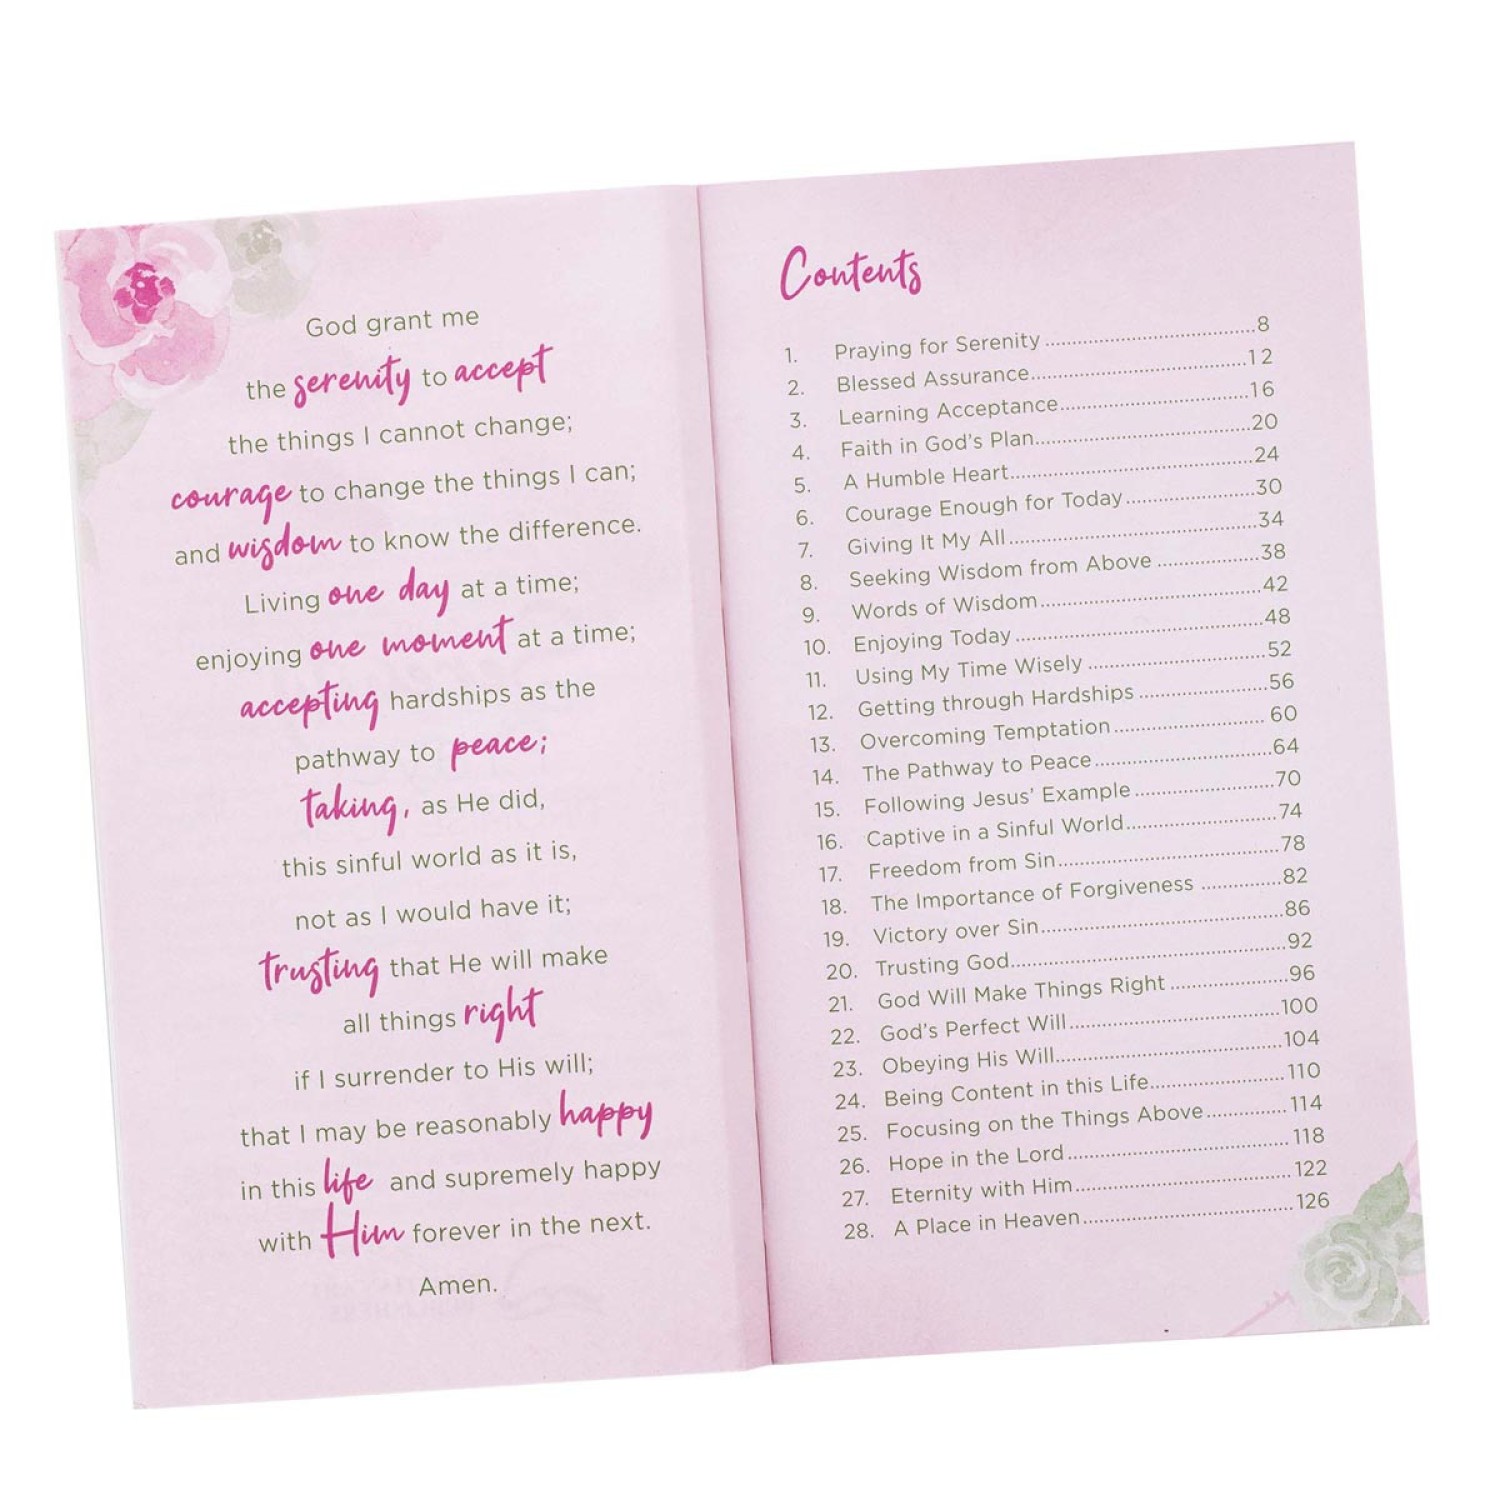 God grant me
the serenity to accept
the things I cannot change;
courage to change the things I can;
and wisdom to know the difference.
Living one day at a time;
enjoying one moment at a time;
accepting hardships as the
pathway to peace;
taking, as He did,
this sinful world as it is,
not as I would have it;
trusting that He will make
all things right
if I surrender to His will;
that I may be reasonably happy
in this life and supremely happy
with Him forever in the next.
Amen.
Contents
1. Praying for Serenity ..........8
2. Blessed Assurance..........12
3. Learning Acceptance..........16
4. Faith in God's Plan..........20
5. A Humble Heart..........24
6. Courage Enough for Today..........30
7. Giving It My All..........34
8. Seeking Wisdom from Above ..........38
9. Words of Wisdom..........42
10. Enjoying Today ..........48
11. Using My Time Wisely ..........52
12. Getting through Hardships ..........56
13. Overcoming Temptation.......... 60
14. The Pathway to Peace..........64
15. Following Jesus' Example ..........70
16. Captive in a Sinful World..........74
17. Freedom from Sin..........78
18. The Importance of Forgiveness ..........82
19. Victory over Sin..........86
20. Trusting God..........92
21. God Will Make Things Right ..........96
22. God's Perfect Will..........100
23. Obeying His Will..........104
24. Being Content in this Life..........110
25. Focusing on the Things Above..........114
26. Hope in the Lord..........118
27. Eternity with Him..........122
28. A Place in Heaven..........126